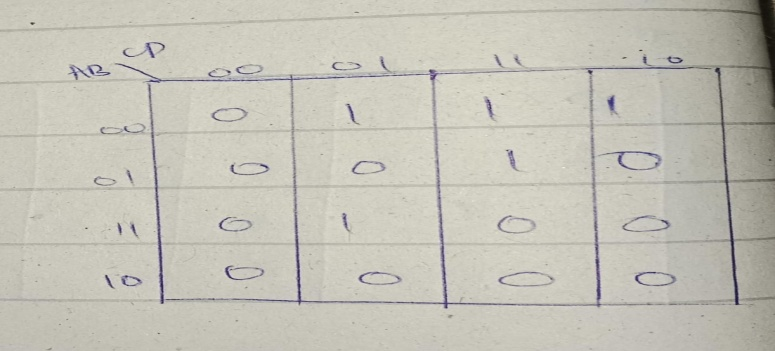 CD
AB \ 00 01 11 10
00 0 1 1 1
01 0 0 1 0
11 0 1 0 0
10 0 0 0 0